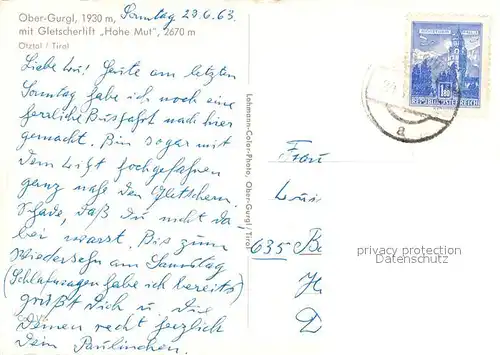 Ober-Gurgl, 1930 m,
mit Gletscherlift „Hohe Mut", 2670 m
Ötztal / Tirol
Sonntag 23.6.63.
Liebe Lui! Heute am letzten
Sonntag habe ich noch eine
herrliche Busfahrt nach hier
gemacht. Bin sogar mit
dem Lift hochgefahren
ganz nahe den Gletschern.
Schade, daß Du nicht da-
bei warst. Bis zum
Wiedersehn am Samstag
(Schlafwagen habe ich bereits)
grüßt Dich u. Die
Deinen recht herzlich
Dein Paulinchen.
Lohmann-Color-Photo, Ober-Gurgl/Tirol
REPUBLIK ÖSTERREICH
a
Frau
Lui
635 B
H
D
privacy protection
Datenschutz